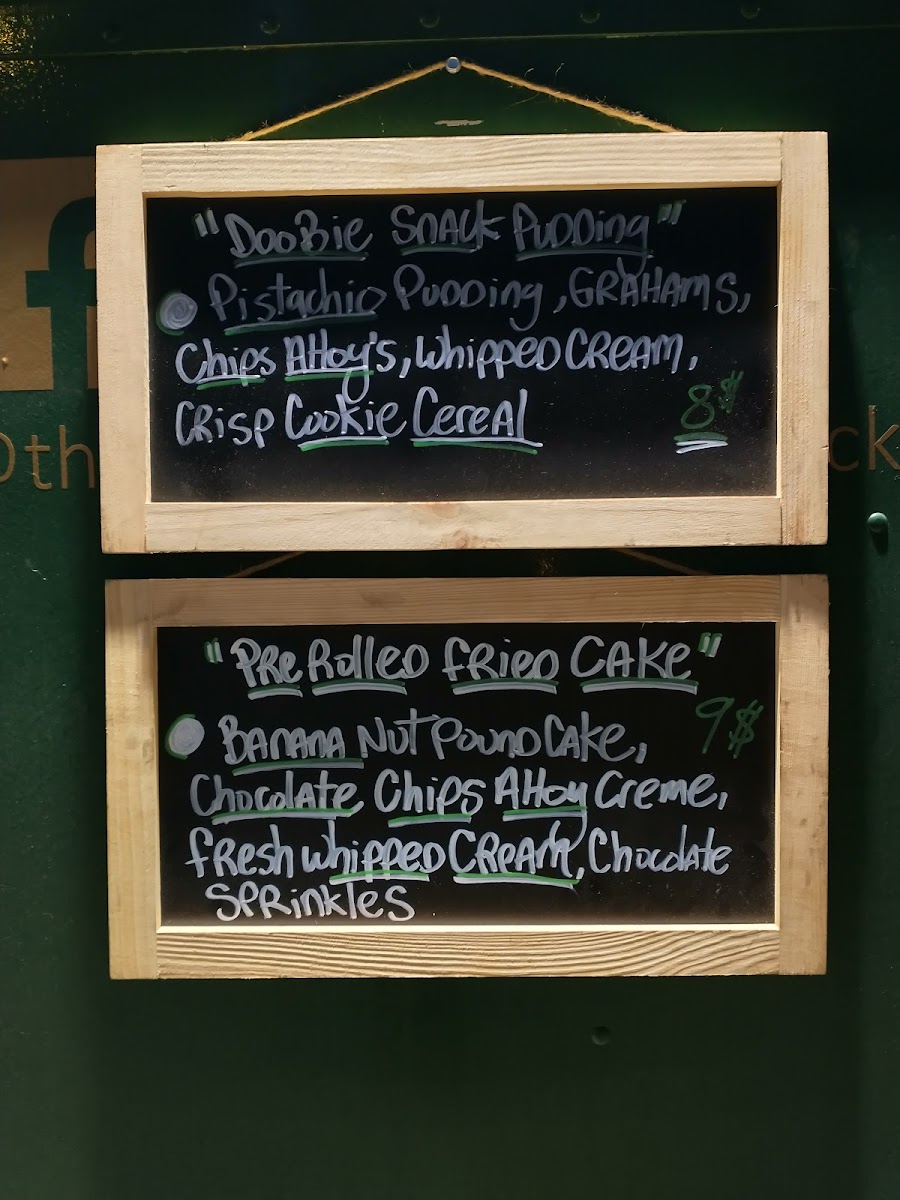 "DooBie SnAck PuDDing"
Pistachio PuDDing, GRAHAMS,
Chips AHoy's, WhippeD CREAM,
CRisp Cookie CereAl
8$
"PRe RolleD fRieD CAKe"
BanAnA Nut PounD Cake,
9$
Chocolate Chips AHoy Creme,
fResh whippeD CReAm, Chocolate
SpRinkles
f
@th
ck